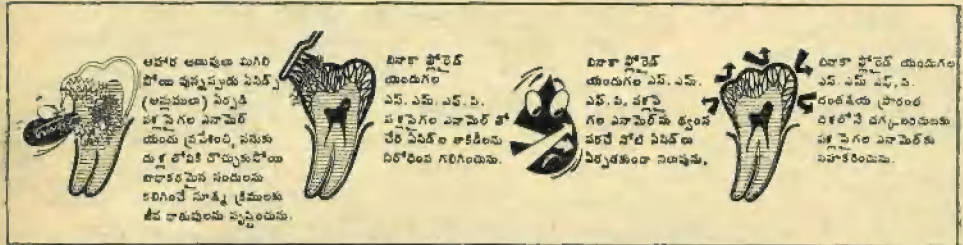 ఆహార అణువులు మిగిలి
పోయి వున్నప్పుడు ఏసిడ్స్
(ఆమ్లములు) ఏర్పడి
పళ్లపైగల ఎనామెల్
యందు ప్రవేశించి, పనుకు
దుళ్ల లోపలికి చొచ్చుకుపోయి
బాధాకరమైన సందులను
కలిగించే సూక్ష్మ క్రిములకు
జీవ ధాతువులను సృష్టించును.
బినాకా ఫ్లోరైడ్
యందుగల
ఎస్. ఎమ్. ఎఫ్. పి.
పళ్లపైగల ఎనామెల్ తో
చేరి ఏసిడ్‌ల తాకిడిను
నిరోధింప గలిగించును.
బినాకా ఫ్లోరైడ్
యందుగల ఎస్. ఎమ్.
ఎఫ్. పి. పళ్లపై
గల ఎనామెల్‌ను ధ్వంస
పరచే నోటి ఏసిడ్‌లు
ఏర్పడకుండా నిలుపును.
బినాకా ఫ్లోరైడ్ యందుగల
ఎస్. ఎమ్. ఎఫ్. పి.
దంతక్షయ ప్రారంభ
దశలోనే దగ్గ
పళ్లపైగల ఎనామెల్‌కు
సహకరించును.